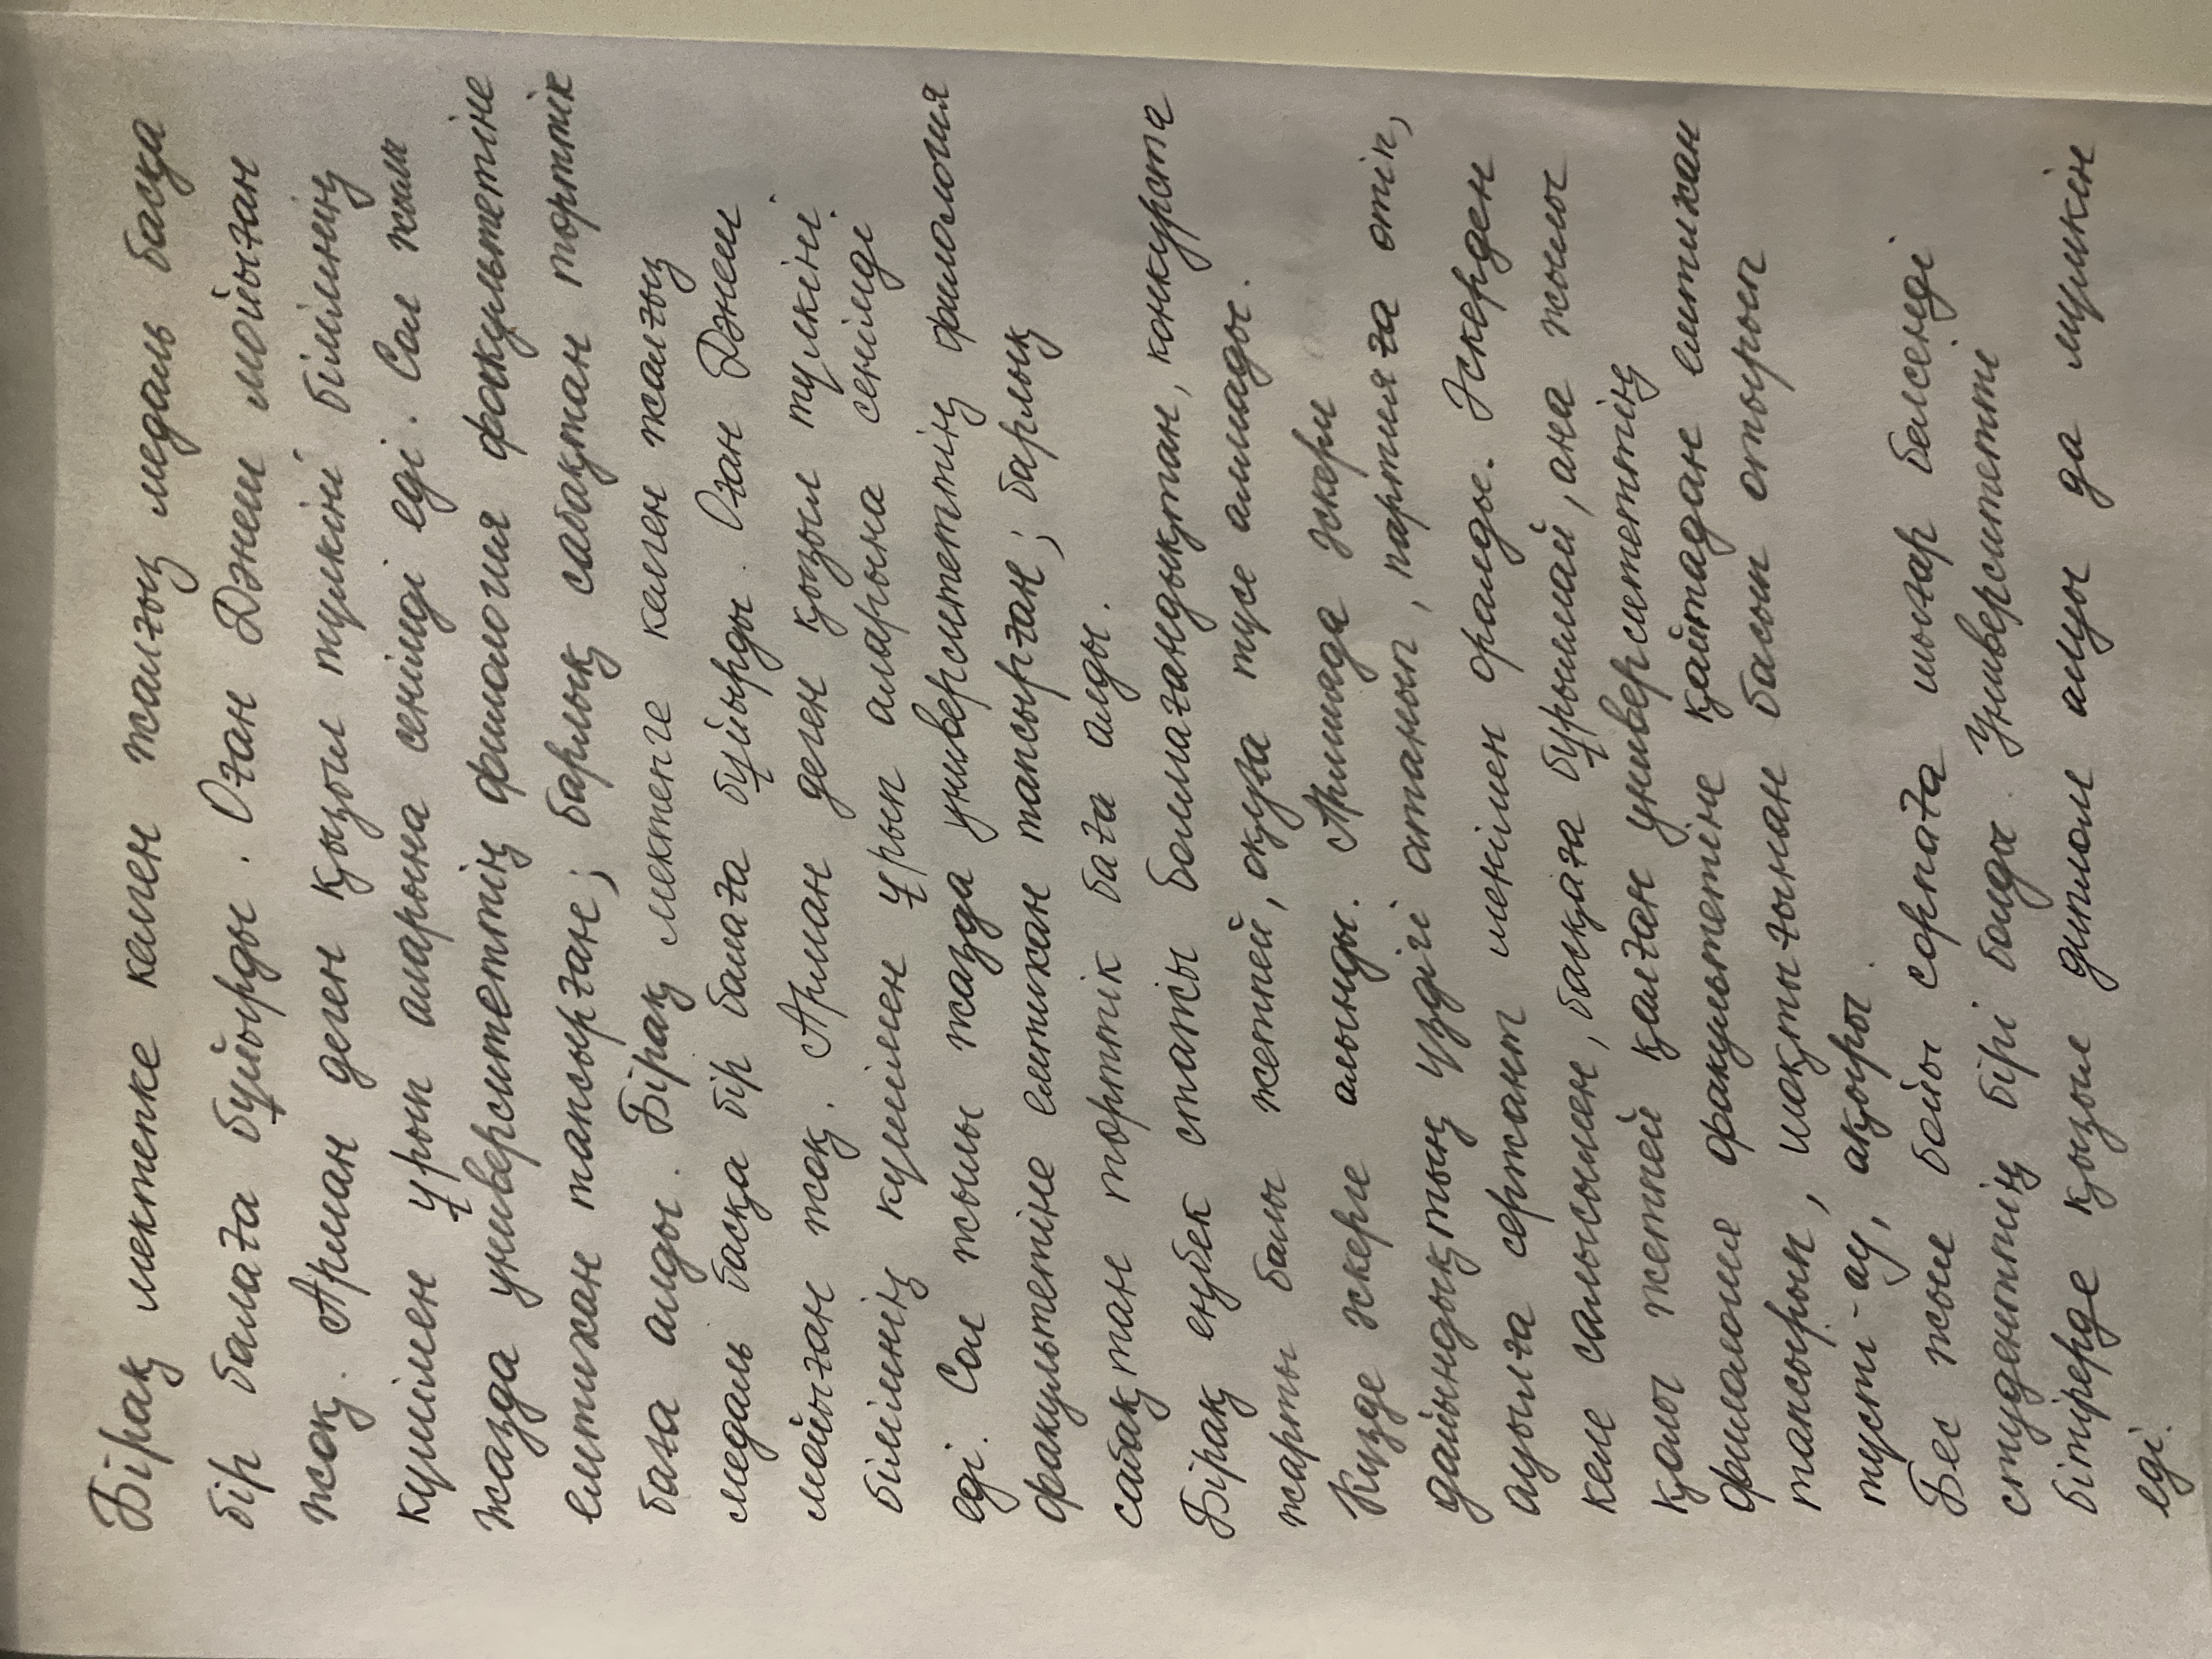 Бірақ мектепке келген жалғыз медаль басқа
бір балаға бұйырды. Оған Дәнеш мойыған
жоқ. Арман деген қызыл түлкіні білімнің
күшімен ұрып аларына сенімді еді. Сол жылы
жазда университеттің филология факультетіне
емтихан тапсырған; барлық сабақтан төрттік
баға алды. Бірақ мектепге келген жалғыз
медаль басқа бір балаға бұйырды. Оған Дәнеш
мойыған жоқ. Арман деген қызыл түлкіні
білімнің күшімен ұрып аларына сенімді
еді. Сол жылы жазда университеттің филология
факультетіне емтихан тапсырған; барлық
сабақтан төрттік баға алды.
Бірақ еңбек стажы болмағандықтан, конкурста
жарты балы жетпей, оқуға түсе алмады.
Күзде әскерге алынды. Армияда әскери
дайындықтың үздігі атанып, партияға өтіп,
ауылға сержант шенімен оралды. Әскерден
келе салысымен, басқаға бұрылмай, ана жылы
қолы жетпей қалған университеттің
филология факультетіне қайтадан емтихан
тапсырып, шоқтығынан басып отырып
түсті-ау, ақыры.
Бес жыл бойы сорпаға шығар белсенді
студенттің бірі болды. Университетті
бітірерде қызыл диплом алуы да мүмкін
еді.